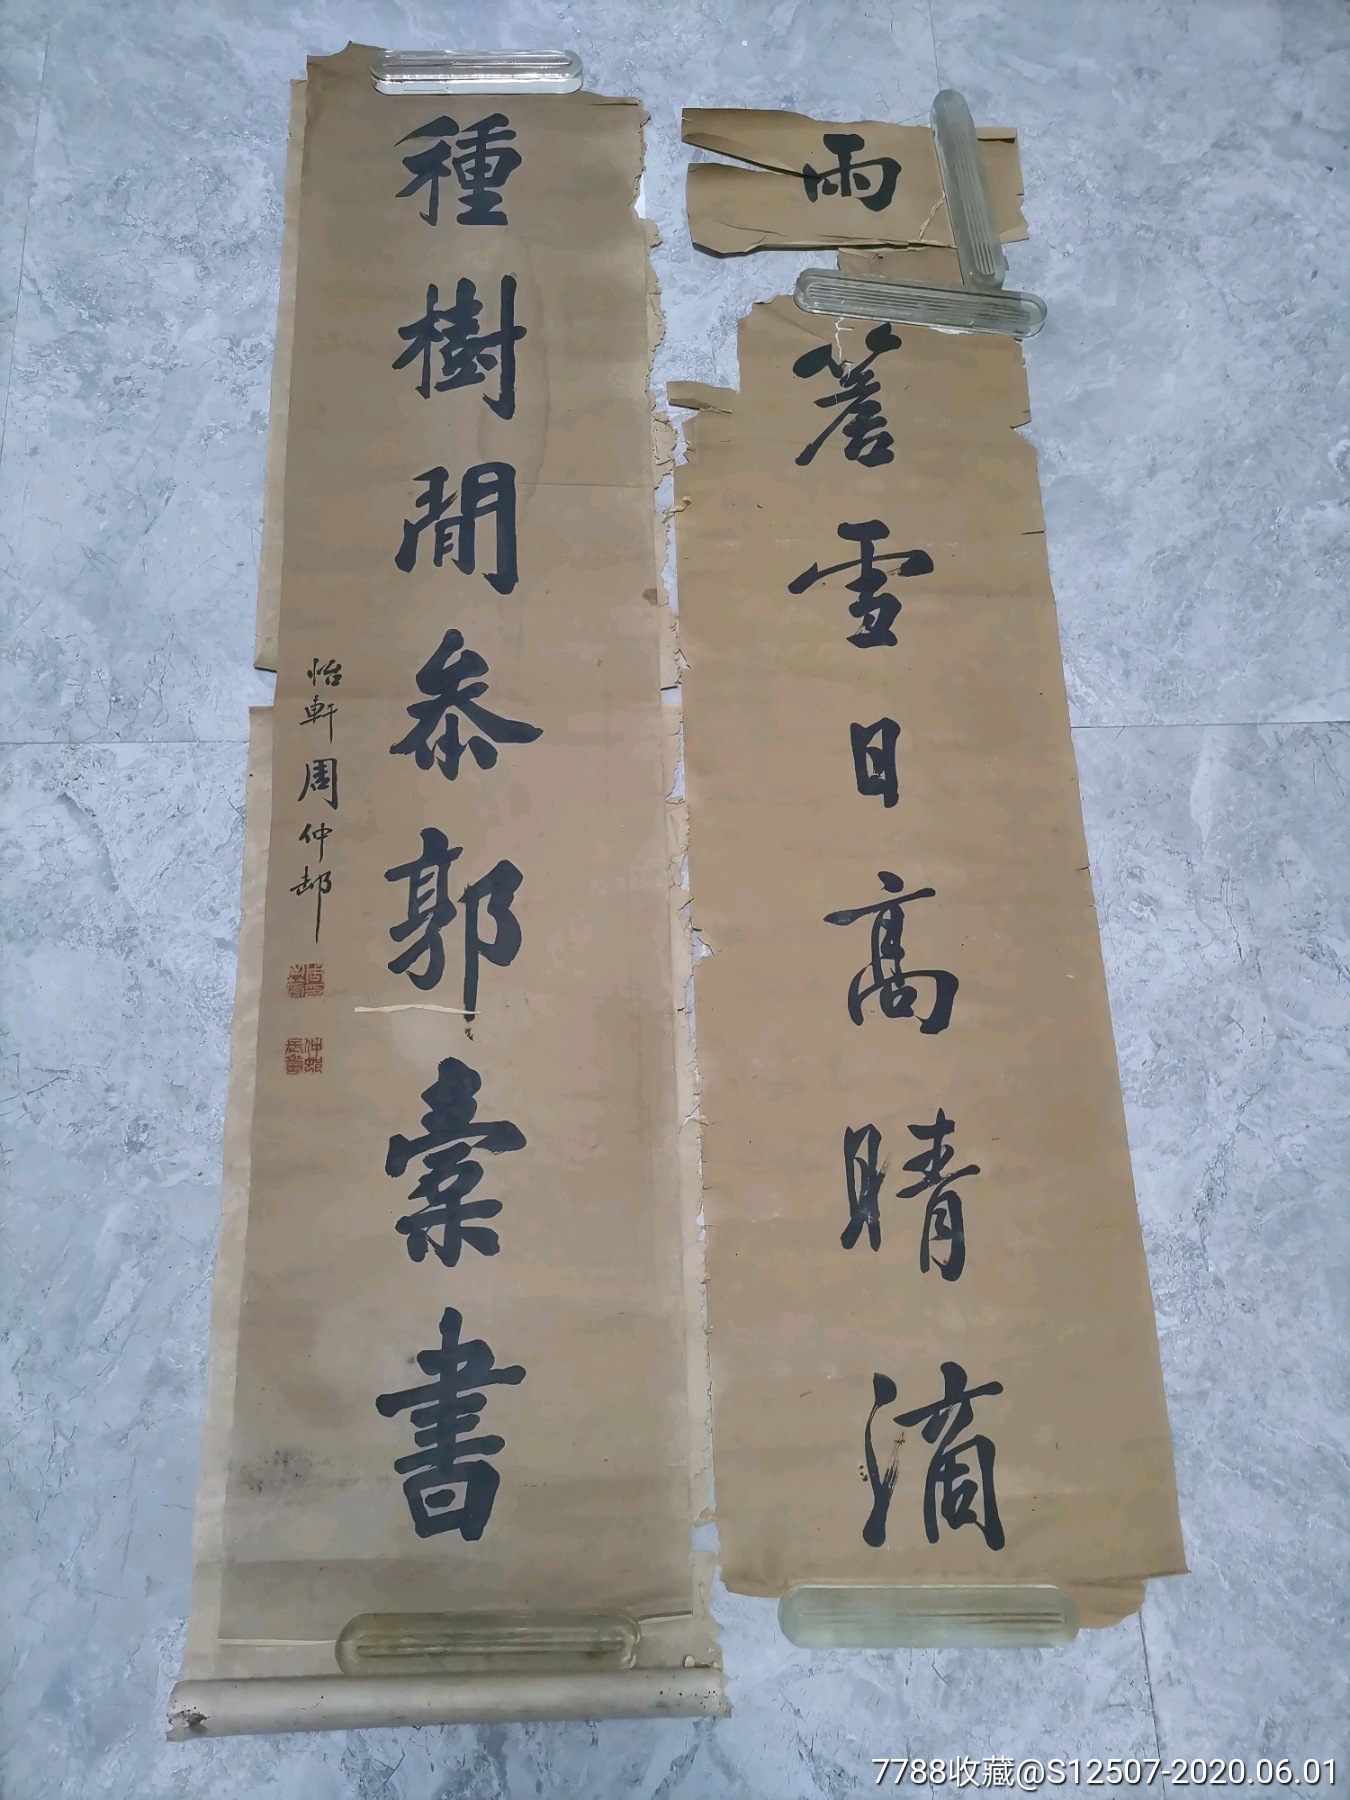 雨簷雪日高晴滴
種樹閒叅郭橐書
怡軒周仲
7788收藏@S12507-2020.06.01